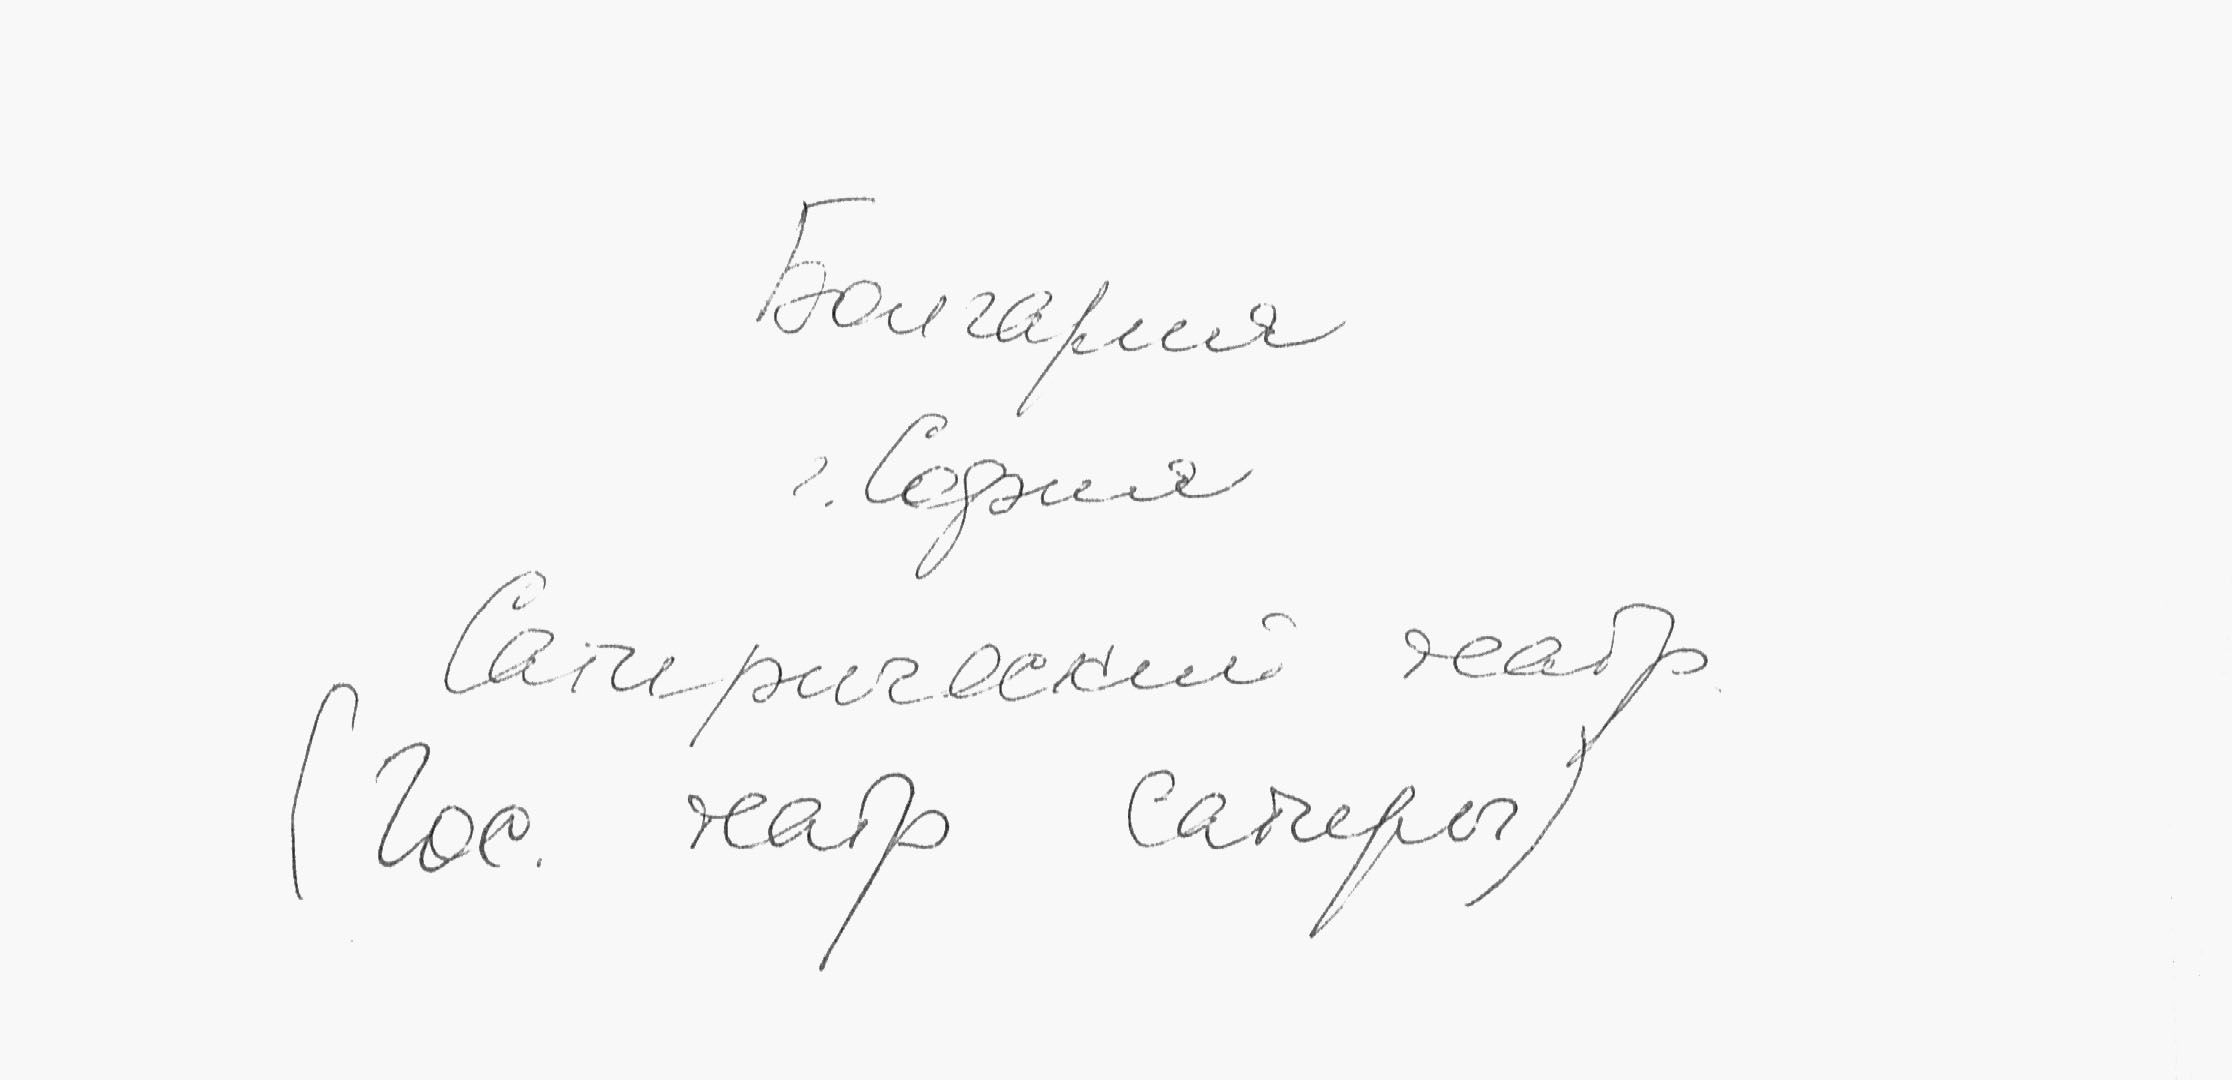 Болгария
г. София
Сатирический театр.
(Гос. театр сатиры)